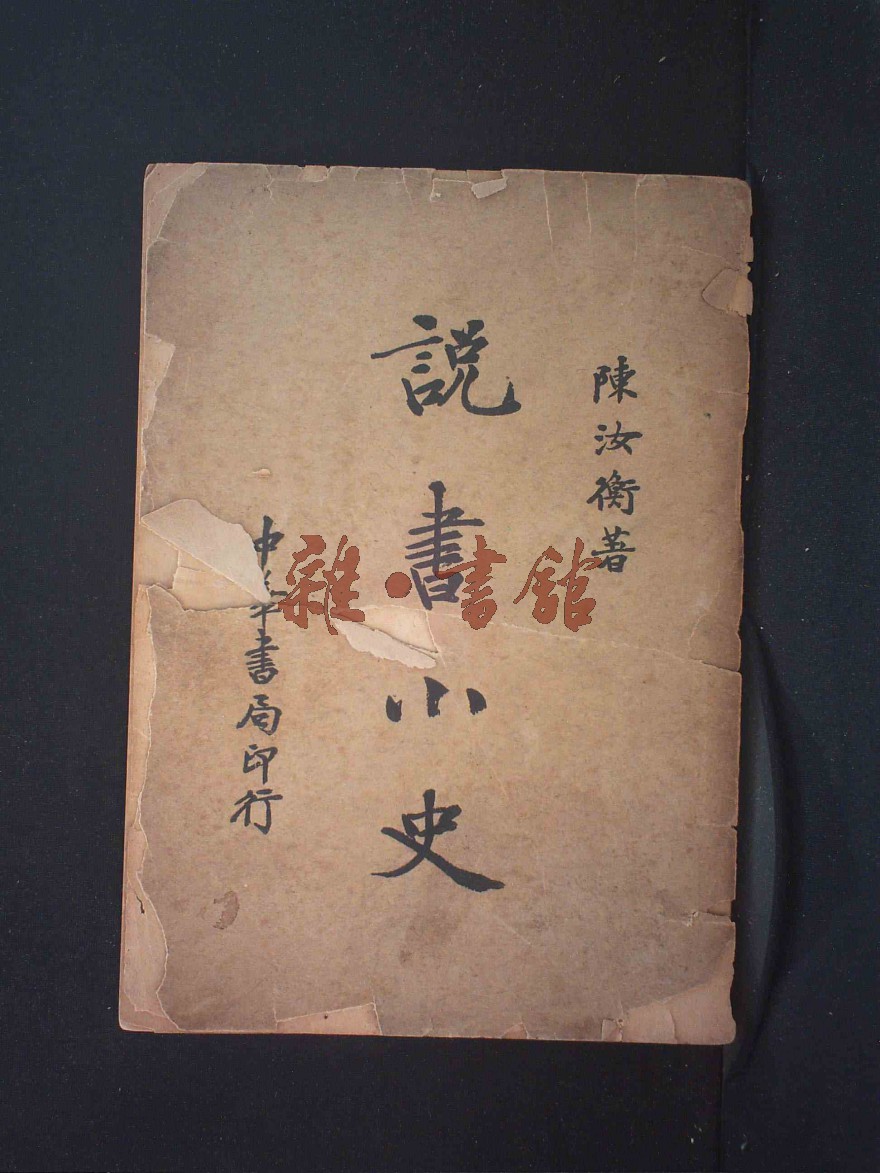 陳汝衡著
説書小史
中華書局印行
雜·書館